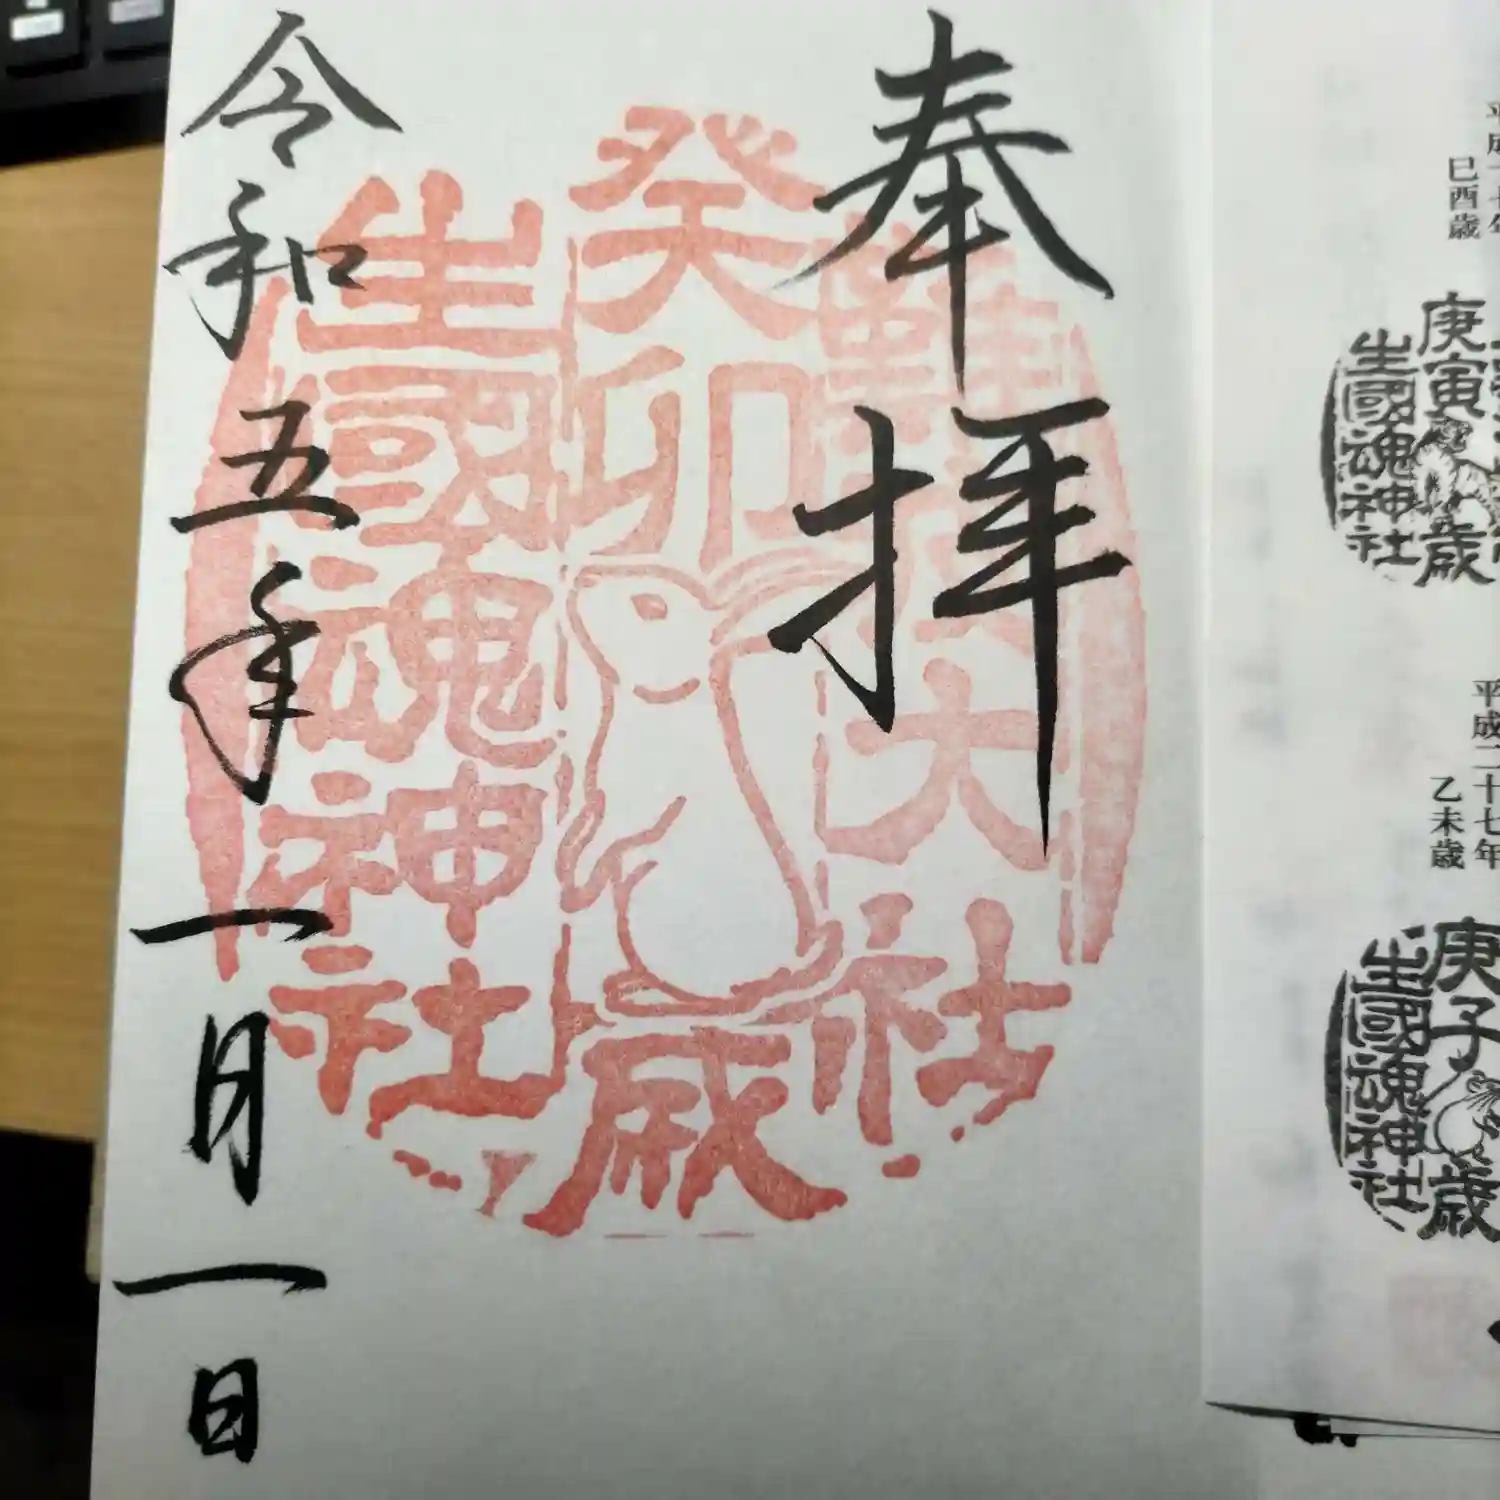 奉拝
難波大社
癸卯
歳
生國魂神社
令和五年一月一日
巳酉歳
庚寅
歳
生國魂神社
平成二十七年
乙未歳
庚子
歳
生國魂神社